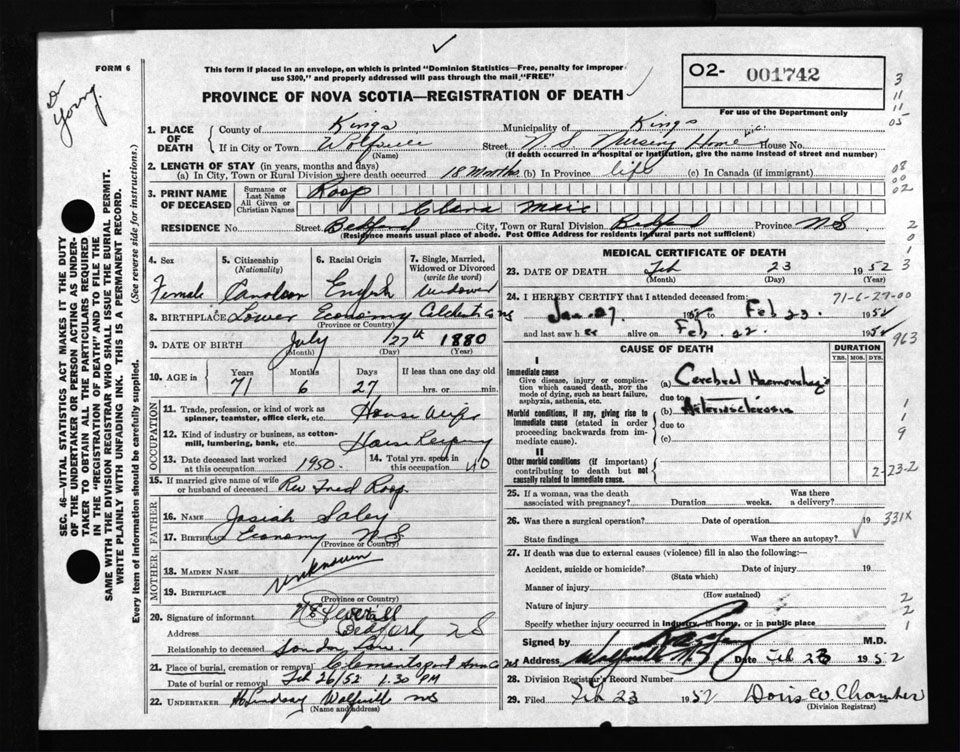 FORM 6
This form if placed in an envelope, on which is printed "Dominion Statistics—Free, penalty for improper
use $300," and properly addressed will pass through the mail, "FREE"
PROVINCE OF NOVA SCOTIA—REGISTRATION OF DEATH
O2- 001742
For use of the Department only
Dr Young.
3
11
11
05
1. PLACE OF DEATH
County of Kings Municipality of Kings
If in City or Town Wolfville Street N S Nursing Home House No.
(Name) (If death occurred in a hospital or institution, give the name instead of street and number)
2. LENGTH OF STAY (in years, months and days)
(a) In City, Town or Rural Division where death occurred 18 Months (b) In Province life (c) In Canada (if immigrant)
08
00
02
3. PRINT NAME OF DECEASED
Surname or Last Name Roop
All Given or Christian Names Clara Marie
RESIDENCE No. Street Bedford City, Town or Rural Division Bedford Province NS
(Residence means usual place of abode. Post Office Address for residents in rural parts not sufficient)
2
0
1
3
SEC. 46—VITAL STATISTICS ACT MAKES IT THE DUTY
OF THE UNDERTAKER OR PERSON ACTING AS UNDER-
TAKER TO OBTAIN ALL THE PARTICULARS REQUIRED
IN THE "REGISTRATION OF DEATH" AND TO FILE THE
SAME WITH THE DIVISION REGISTRAR WHO SHALL ISSUE THE BURIAL PERMIT.
WRITE PLAINLY WITH UNFADING INK. THIS IS A PERMANENT RECORD.
Every item of information should be carefully supplied. (See reverse side for instructions.)
4. Sex
Female
5. Citizenship
(Nationality)
Canadian
6. Racial Origin
English
7. Single, Married,
Widowed or Divorced
(write the word)
widowed
8. BIRTHPLACE Lower Economy Colchester Co NS
(Province or Country)
9. DATE OF BIRTH July 27th 1880
(Month) (Day) (Year)
10. AGE in
Years Months Days If less than one day old
71 6 27 hrs. or min.
OCCUPATION
11. Trade, profession, or kind of work as
spinner, teamster, office clerk, etc. House Wife
12. Kind of industry or business, as cotton-
mill, lumbering, bank, etc. House Keeping
13. Date deceased last worked
at this occupation 1950.
14. Total yrs. spent in
this occupation 40
15. If married give name of wife
or husband of deceased Rev Fred Roop
FATHER
16. NAME Josiah
17. BIRTHPLACE Economy N.S.
(Province or Country)
MOTHER
18. MAIDEN NAME
Unknown
19. BIRTHPLACE
(Province or Country)
20. Signature of informant
Address Bedford NS
Relationship to deceased Son in Law.
21. Place of burial, cremation or removal Clementsport Anna Co NS
Date of burial or removal Feb 26/52 1.30 PM
22. UNDERTAKER H Lindsay Wolfville NS
(Name and address)
MEDICAL CERTIFICATE OF DEATH
23. DATE OF DEATH Feb 23 1952
(Month) (Day)
24. I HEREBY CERTIFY that I attended deceased from
71-6-27-00
Jan. 27. 1952 to Feb 23. 1952
and last saw her alive on Feb. 22. 1952
963
CAUSE OF DEATH
DURATION
YRS. MOS. DYS.
I
Immediate cause
Give disease, injury or complica-
tion which caused death, NOT the
mode of dying, such as heart failure,
asphyxia, asthenia, etc.
(a) Cerebral Haemorrhage
due to
Morbid conditions, if any, giving rise to
immediate cause (stated in order
proceeding backwards from im-
mediate cause).
(b) Arteriosclerosis
due to
(c)
1
9
II
Other morbid conditions (if important)
contributing to death but not
causally related to immediate cause.
2-23-2
25. If a woman, was the death
associated with pregnancy? Duration weeks. Was there
a delivery?
26. Was there a surgical operation? Date of operation 19
331X
State findings Was there an autopsy?
27. If death was due to external causes (violence) fill in also the following:—
Accident, suicide or homicide? Date of injury 19
(State which)
Manner of injury
(How sustained)
Nature of injury
Specify whether injury occurred in industry, in home, or in public place
2
2
1
Signed by M.D.
Address Wolfville NS Date Feb 23 1952
28. Division Registrar's Record Number
29. Filed Feb 23 1952 Doris W. Chamber
(Division Registrar)